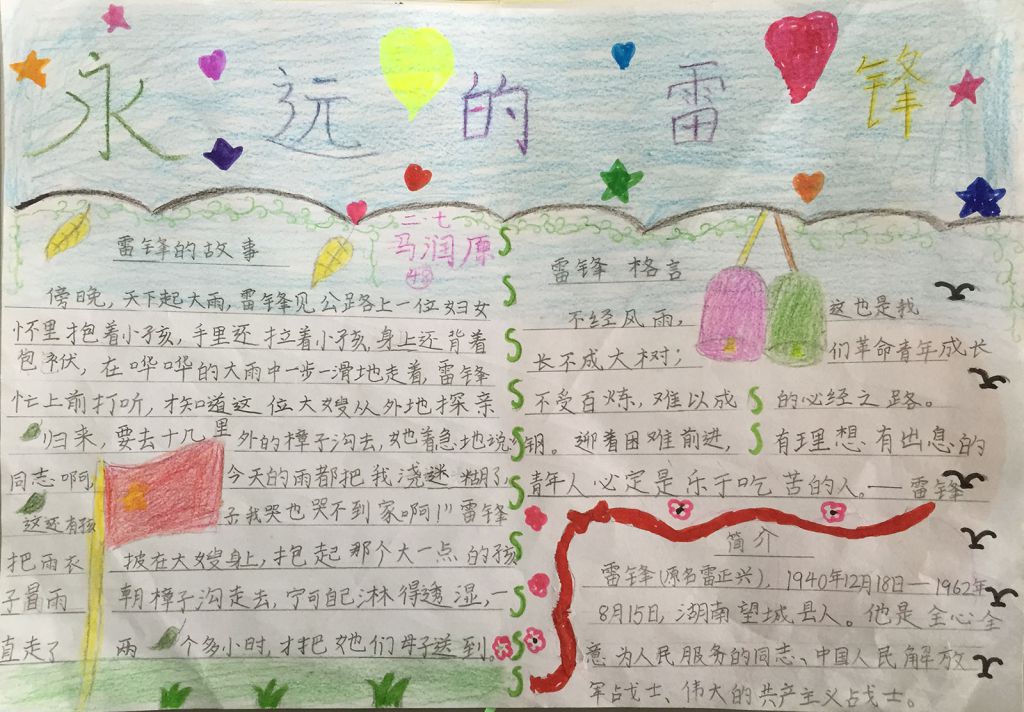 永远的雷锋
二·七
马润原
48
雷锋的故事
傍晚，天下起大雨，雷锋见公路上一位妇女
怀里抱着小孩，手里还拉着小孩，身上还背着
包袱，在哗哗的大雨中一步一滑地走着，雷锋
忙上前打听，才知道这位大嫂从外地探亲
归来，要去十几里外的樟子沟去，她着急地说：
同志啊，今天的雨都把我浇迷糊了，
这还有孩子我哭也哭不到家啊！"雷锋
把雨衣披在大嫂身上，抱起那个大一点的孩
子冒雨朝樟子沟走去，宁可自己淋得透湿，一
直走了两个多小时，才把她们母子送到。
雷锋格言
不经风雨，
长不成大树；
不受百炼，难以成
钢。迎着困难前进，
这也是我
们革命青年成长
的必经之路。
有理想有出息的
青年人必定是乐于吃苦的人。——雷锋
简介
雷锋(原名雷正兴)，1940年12月18日—1962年
8月15日，湖南望城县人。他是全心全
意为人民服务的同志、中国人民解放
军战士、伟大的共产主义战士。